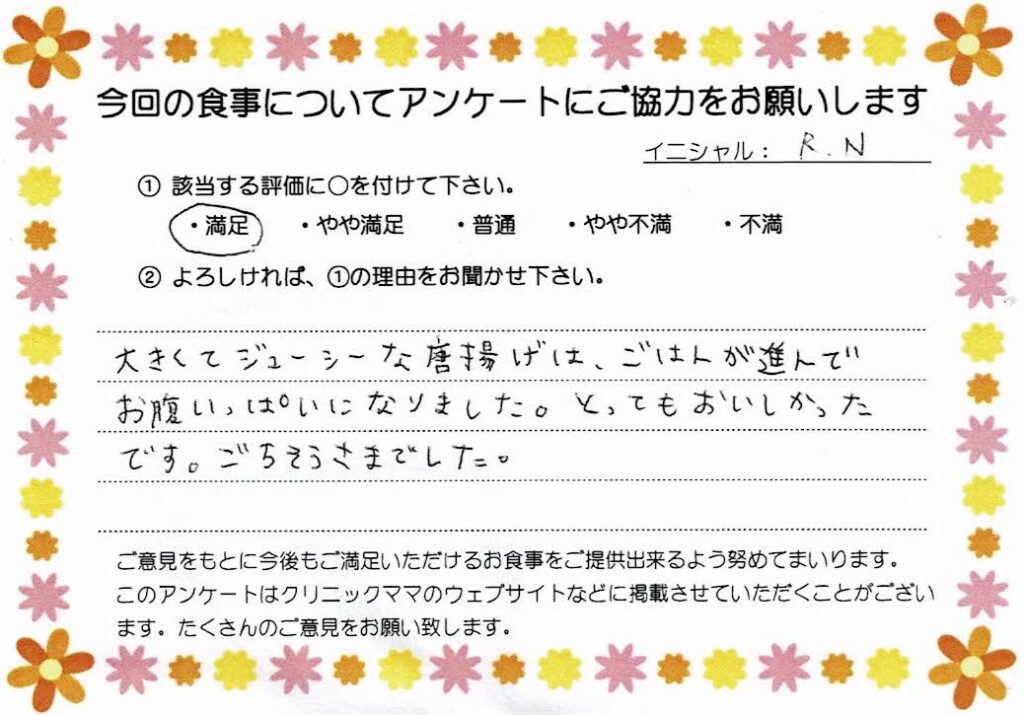 今回の食事についてアンケートにご協力をお願いします
イニシャル： R.N
① 該当する評価に〇を付けて下さい。
・満足 ・やや満足 ・普通 ・やや不満 ・不満
② よろしければ、①の理由をお聞かせ下さい。
大きくてジューシーな唐揚げは、ごはんが進んで
お腹いっぱいになりました。とってもおいしかった
です。ごちそうさまでした。
ご意見をもとに今後もご満足いただけるお食事をご提供出来るよう努めてまいります。
このアンケートはクリニックママのウェブサイトなどに掲載させていただくことがござい
ます。たくさんのご意見をお願い致します。